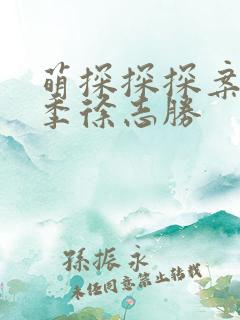 萌探探探案
季徐志勝
孫振永
未经同意禁止转载